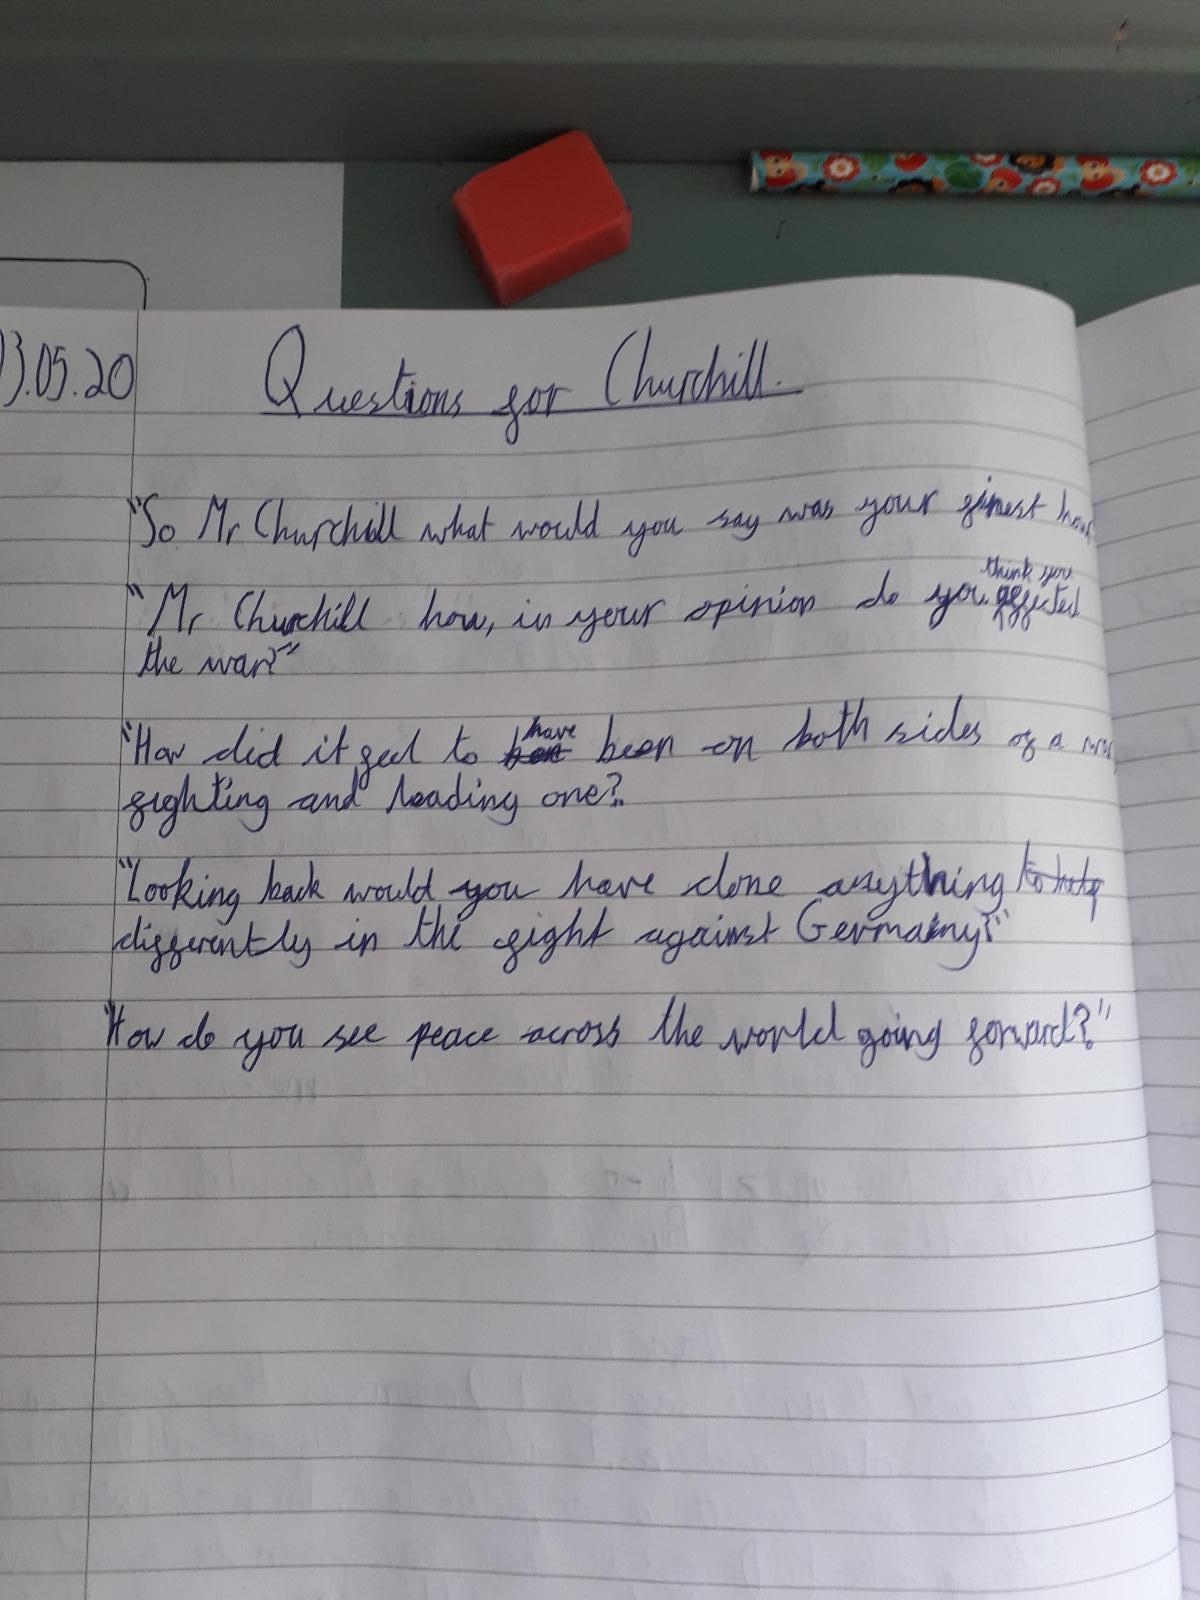 13.05.20
Questions for Churchill.
"So Mr Churchill what would you say was your finest hour
think you
"Mr Churchill how, in your opinion do you affected
the war?"
have
"How did it feel to been on both sides of a war,
fighting and leading one?"
"Looking back would you have done anything to help
differently in the fight against Germany?"
"How do you see peace across the world going forward?"